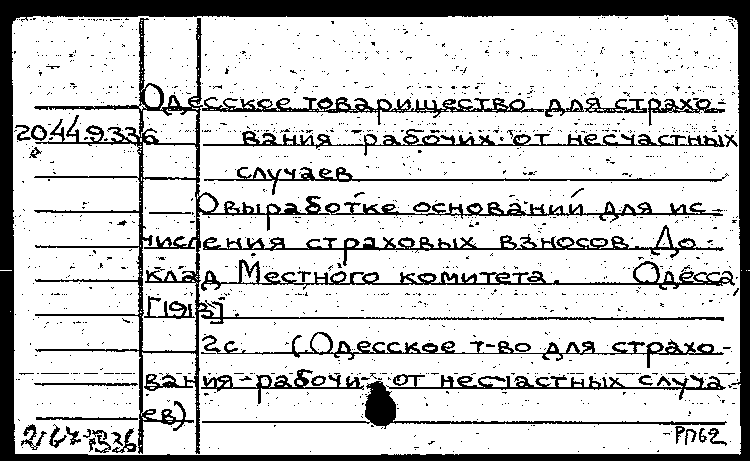 Одесское товарищество для страхо-
20.44.9.336 вания рабочих от несчастных
случаев
О выработке оснований для ис-
числения страховых взносов. До-
клад Местного комитета. Одесса,
[1913].
2с. (Одесское т-во для страхо-
вания рабочих от несчастных случа-
ев)
РП62